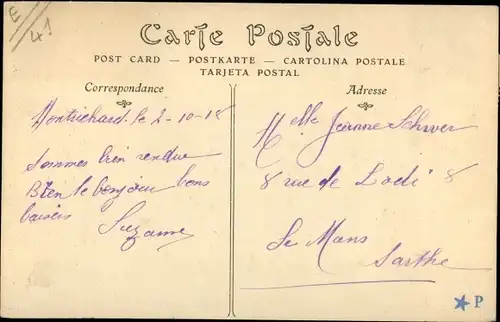 E
41
Carte Postale
POST CARD — POSTKARTE — CARTOLINA POSTALE
TARJETA POSTAL
Correspondance
Montrichard le 2-10-18
Sommes bien rendue
Bien le bonjour bons
baisers Suzanne
Adresse
Melle Jeanne Schwer
8 rue de Lodi 8
Le Mans
Sarthe
P